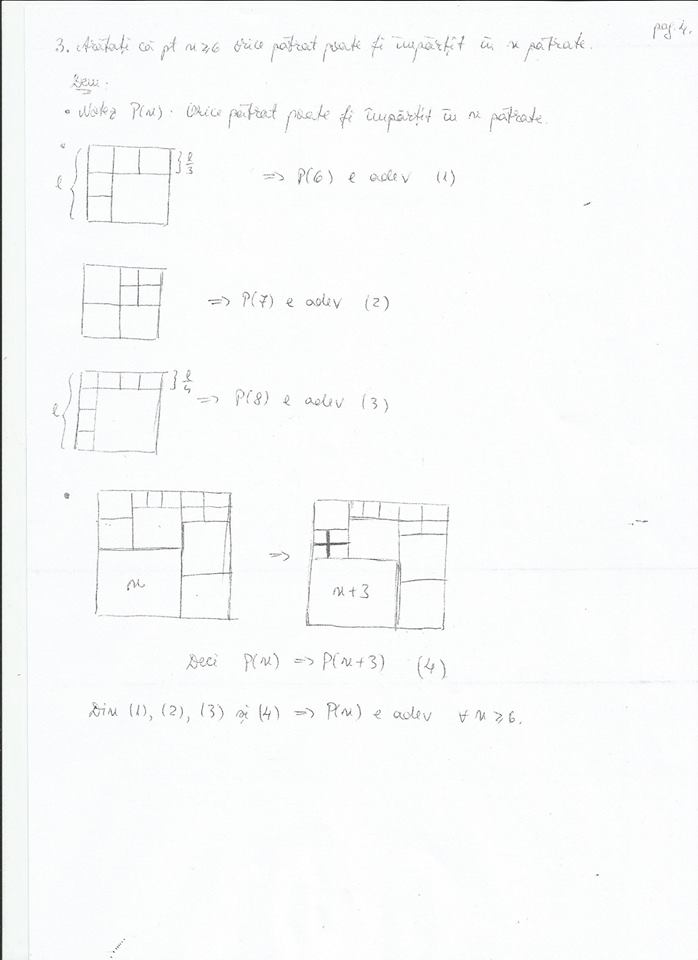 pag. 4.
3. Arătați că pt n ≥ 6 orice pătrat poate fi împărțit în n pătrate.
Dem.
• Notez P(n): Orice pătrat poate fi împărțit în n pătrate.
l l/3 => P(6) e adev (1)
=> P(7) e adev (2)
l l/4 => P(8) e adev (3)
n => n+3
Deci P(n) => P(n+3) (4)
Din (1), (2), (3) și (4) => P(n) e adev ∀ n ≥ 6.